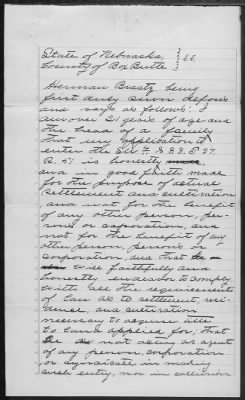 State of Nebraska } ss.
County of Box Butte
Herman Braatz being
first duly sworn deposes
and says as follows: I
am over 21 years of age and
the head of a family
that my application to
enter
R. 47 is honestly made
and in good faith made
for the purpose of actual
settlement and cultivation
and not for the benefit
of any other person, per-
sons or corporation, and
not for the benefit of any
other person, persons or
corporation, and that he
will faithfully and
honestly endeavor to comply
with all the requirements
of law as to settlement, resi-
dence, and cultivation
necessary to acquire title
to land applied for; that
he is not acting as agent
of any person, corporation
or syndicate in making
such entry, nor in collusion